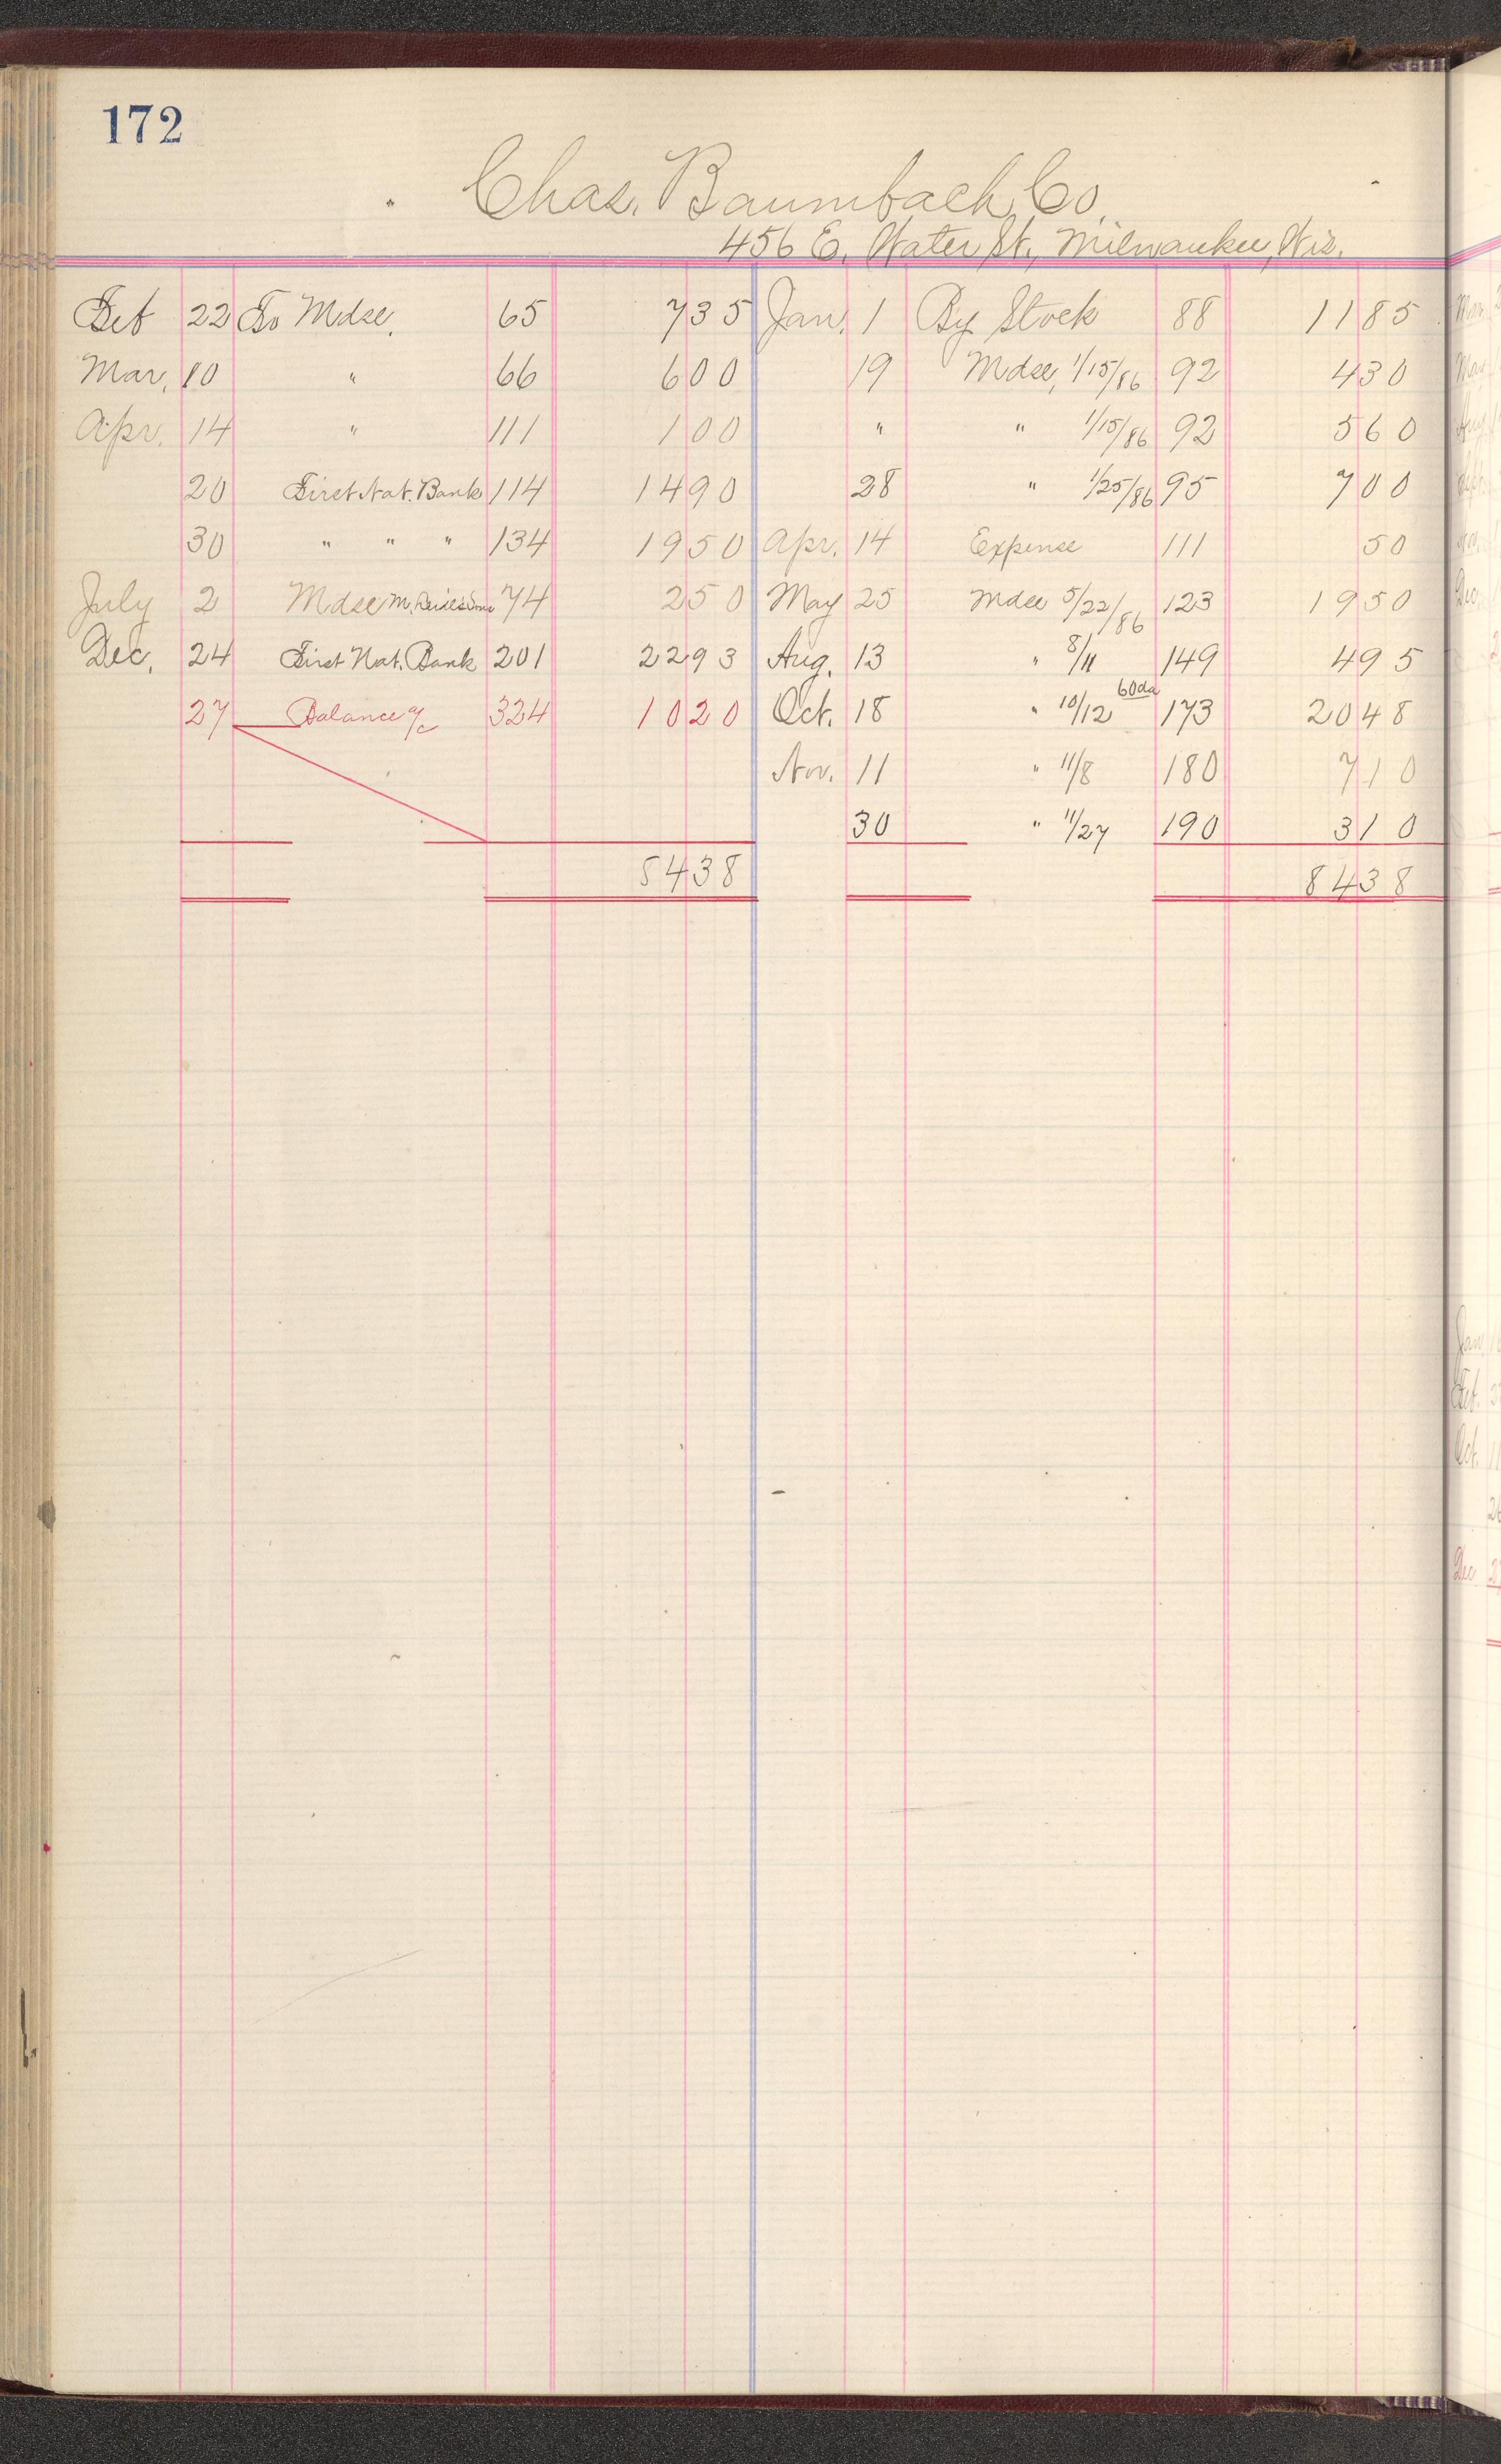 172
Chas. Baumbach Co.
456 E. Water St., Milwaukee, Wis.
Feb 22 To Mdse. 65 7 35 Jan. 1 By Stock 88 11 85
Mar. 10 " 66 6 00 19 Mdse, 1/15/86 92 4 30
Apr. 14 " 111 1 00 " " 1/15/86 92 5 60
20 First Nat. Bank 114 14 90 28 " 1/25/86 95 7 00
30 " " " 134 19 50 Apr. 14 Expense 111 50
July 2 Mdse M. 74 2 50 May 25 Mdse 5/22/86 123 19 50
Dec. 24 First Nat. Bank 201 22 93 Aug. 13 " 8/11 149 4 95
27 Balance a/c 324 10 20 Oct. 18 " 10/12 60da 173 20 48
Nov. 11 " 11/8 180 7 10
30 " 11/27 190 3 10
84 38 84 38